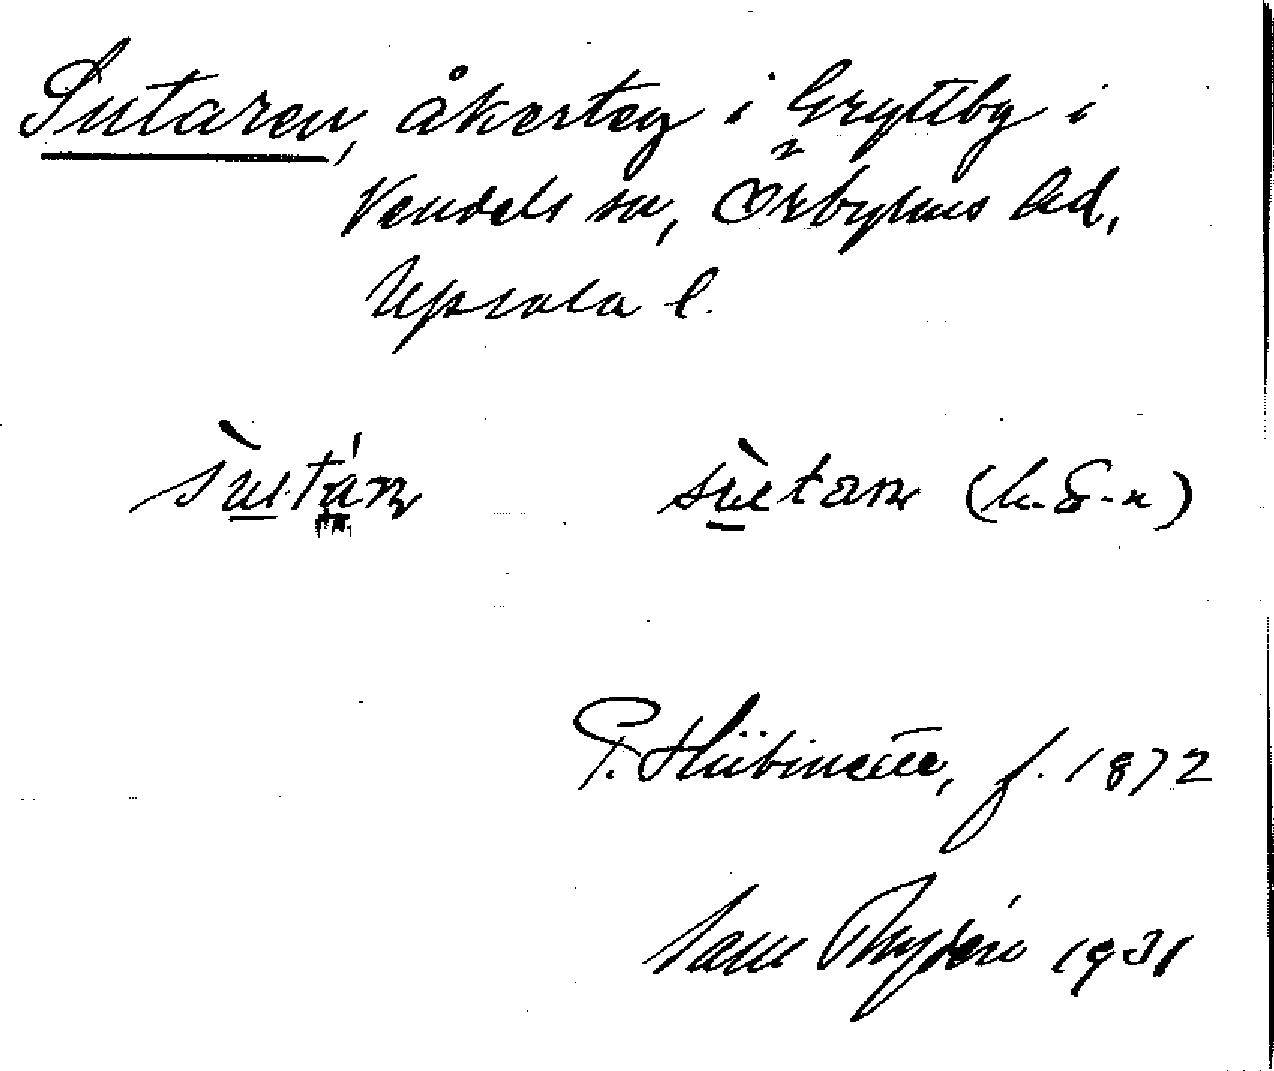 Sutaren, åkerteg i Gryttby i
Vendels sn, Örbyhus hd,
Upsala l.
sutarn (h. G-n)
P. Hübinette, f. 1872
Sam Rydén 1931